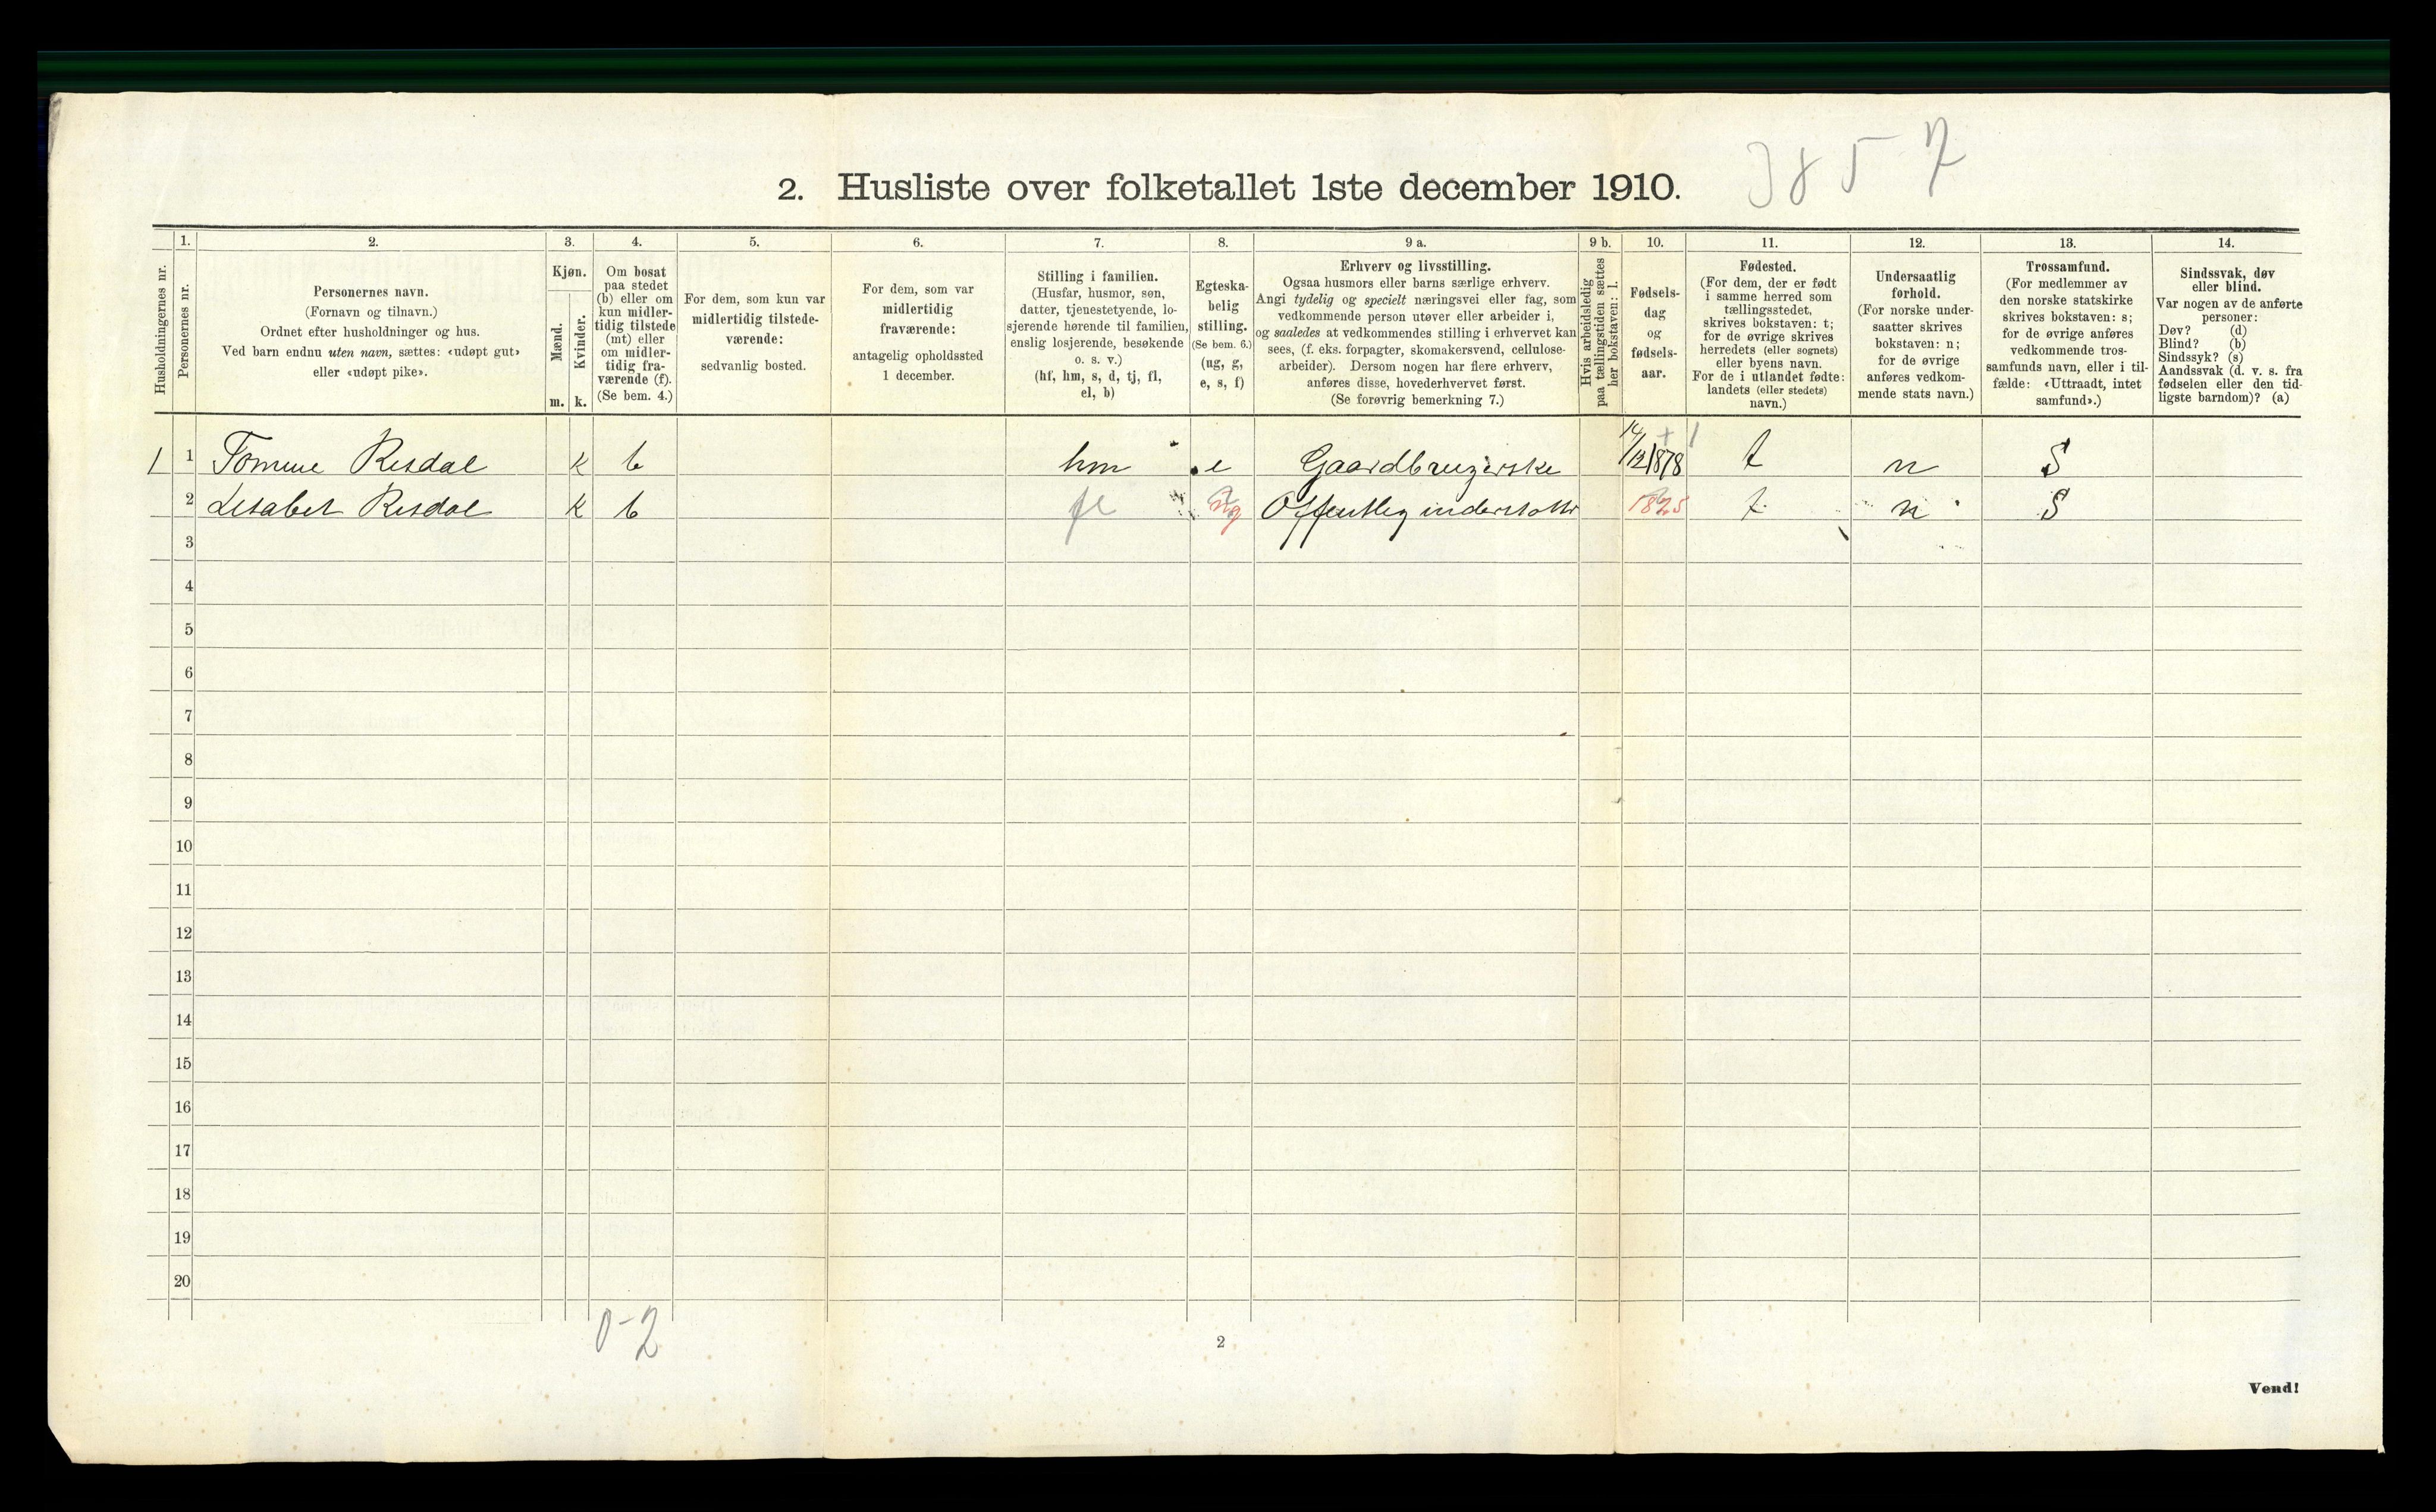 3857
2. Husliste over folketallet 1ste december 1910.
Husholdningernes nr.
1.
Personernes nr.
2.
Personernes navn.
(Fornavn og tilnavn.)
Ordnet efter husholdninger og hus.
Ved barn endnu uten navn, sættes: «udøpt gut»
eller «udøpt pike».
3.
Kjøn.
Mænd.
Kvinder.
m. k.
4.
Om bosat
paa stedet
(b) eller om
kun midler-
tidig tilstede
(mt) eller
om midler-
tidig fra-
værende (f).
(Se bem. 4.)
5.
For dem, som kun var
midlertidig tilstede-
værende:
sedvanlig bosted.
6.
For dem, som var
midlertidig
fraværende:
antagelig opholdssted
1 december.
7.
Stilling i familien.
(Husfar, husmor, søn,
datter, tjenestetyende, lo-
sjerende hørende til familien,
enslig losjerende, besøkende
o. s. v.)
(hf, hm, s, d, tj, fl,
el, b)
8.
Egteska-
belig
stilling.
(Se bem. 6.)
(ug, g,
e, s, f)
9 a.
Erhverv og livsstilling.
Ogsaa husmors eller barns særlige erhverv.
Angi tydelig og specielt næringsvei eller fag, som
vedkommende person utøver eller arbeider i,
og saaledes at vedkommendes stilling i erhvervet kan
sees, (f. eks. forpagter, skomakersvend, cellulose-
arbeider). Dersom nogen har flere erhverv,
anføres disse, hovederhvervet først.
(Se forøvrig bemerkning 7.)
9 b.
Hvis arbeidsledig
paa tællingstiden sættes
her bokstaven: l.
10.
Fødsels-
dag
og
fødsels-
aar.
11.
Fødested.
(For dem, der er født
i samme herred som
tællingsstedet,
skrives bokstaven: t;
for de øvrige skrives
herredets (eller sognets)
eller byens navn.
For de i utlandet fødte:
landets (eller stedets)
navn.)
12.
Undersaatlig
forhold.
(For norske under-
saatter skrives
bokstaven: n;
for de øvrige
anføres vedkom-
mende stats navn.)
13.
Trossamfund.
(For medlemmer av
den norske statskirke
skrives bokstaven: s;
for de øvrige anføres
vedkommende tros-
samfunds navn, eller i til-
fælde: «Uttraadt, intet
samfund».)
14.
Sindssvak, døv
eller blind.
Var nogen av de anførte
personer:
Døv? (d)
Blind? (b)
Sindssyk? (s)
Aandssvak (d. v. s. fra
fødselen eller den tid-
ligste barndom)? (a)
1 1 Tomine Risdal k b hm e Gaardbrugerske 14/12 1878 t n S
2 Lisabet Risdal k b fl ug Offentlig inderstotter 1825 t n S
3
4
5
6
7
8
9
10
11
12
13
14
15
16
17
18
19
20
0-2
2
Vend!